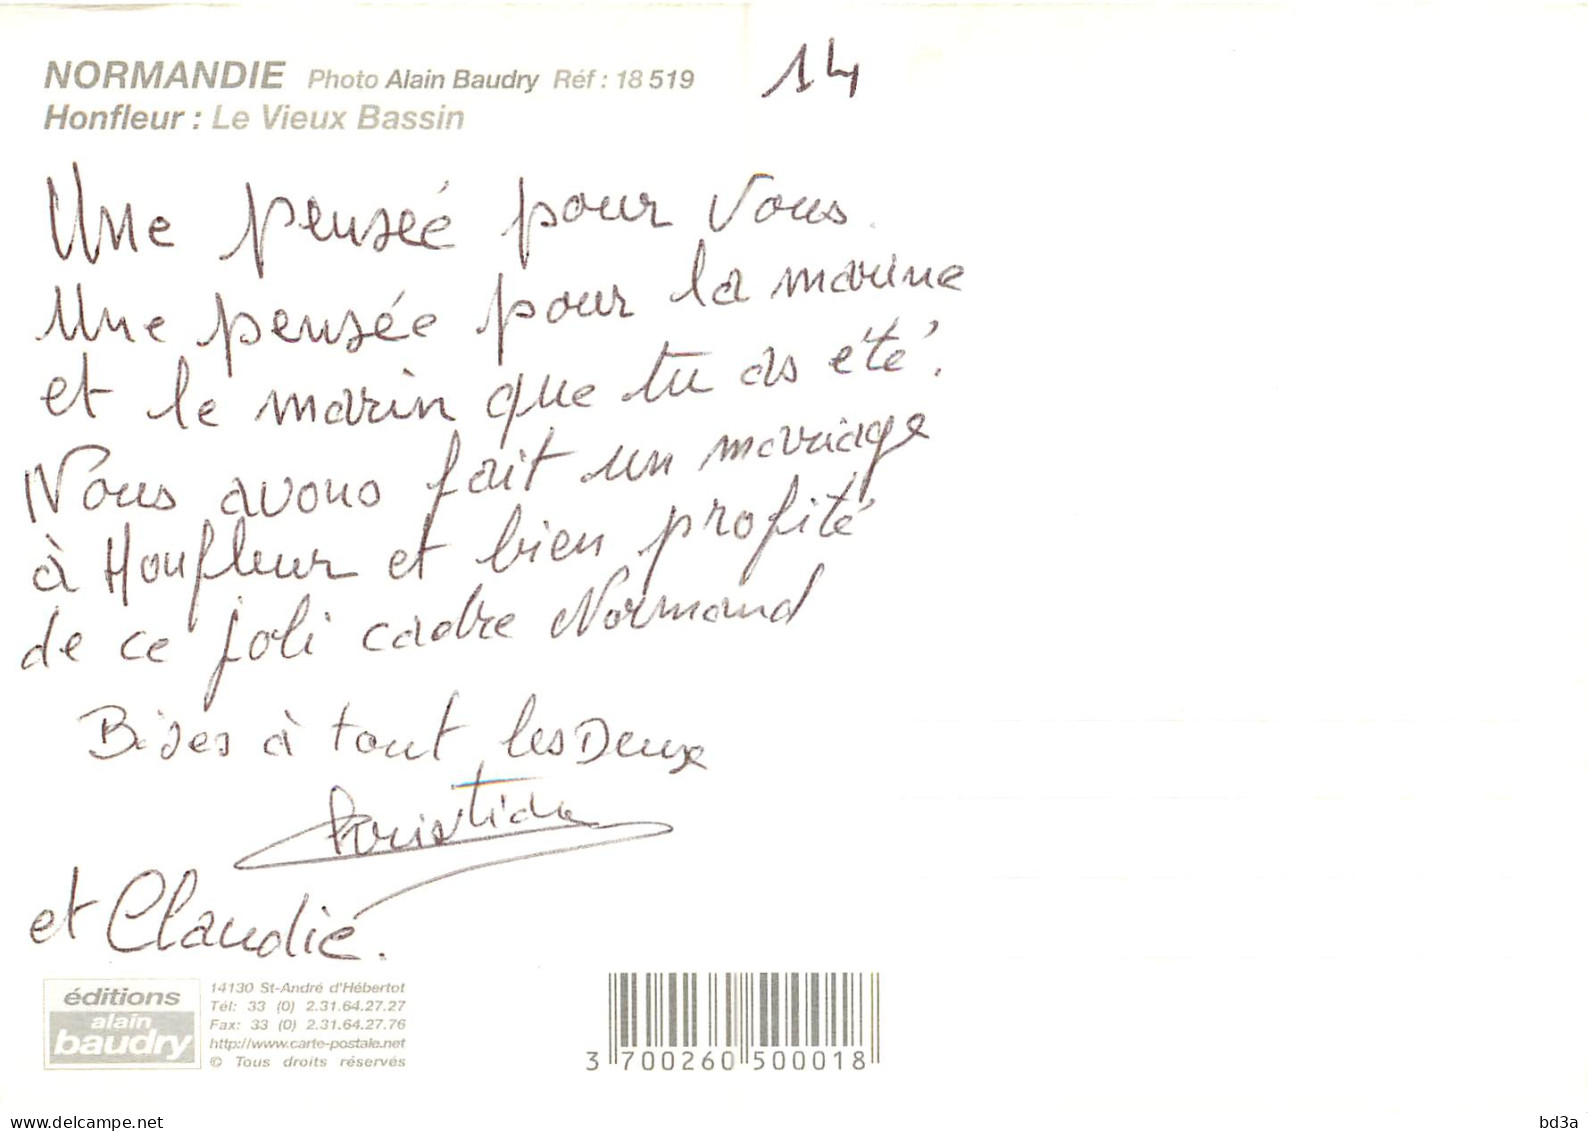 NORMANDIE Photo Alain Baudry Réf : 18 519
14
Honfleur : Le Vieux Bassin
Une pensée pour Vous.
Une pensée pour la marine
et le marin que tu as été.
Nous avons fait un mariage
à Honfleur et bien profité
de ce joli cadre Normand
Bises à tout les Deux
et Claudie.
éditions
alain
baudry
14130 St-André d'Hébertot
Tél: 33 (0) 2.31.64.27.27
Fax: 33 (0) 2.31.64.27.76
http://www.carte-postale.net
© Tous droits réservés
3 700260 500018
www.delcampe.net
bd3a